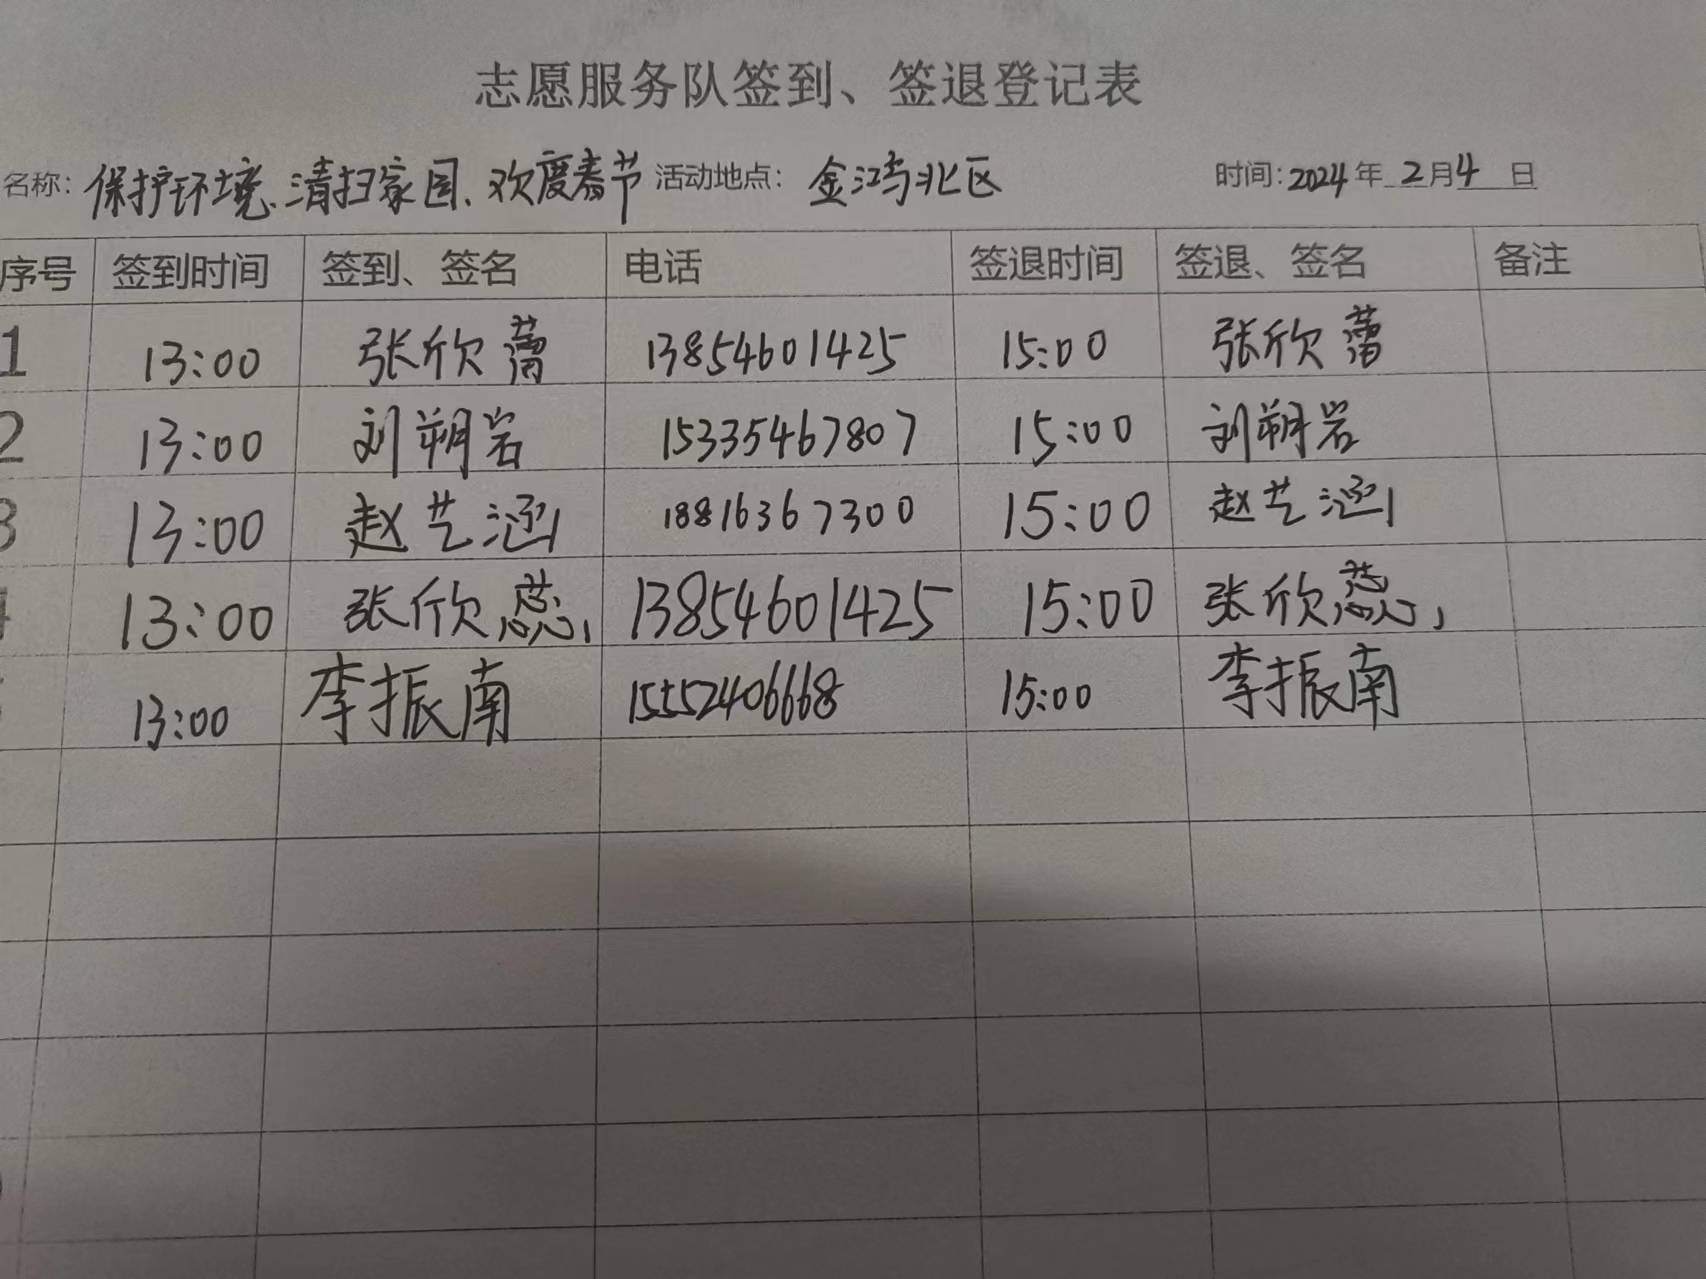 志愿服务队签到、签退登记表
名称：保护环境、清扫家园、欢度春节 活动地点：金鸿北区 时间：2024年 2月4 日
序号 签到时间 签到、签名 电话 签退时间 签退、签名 备注
1 13:00 张欣蕾 13854601425 15:00 张欣蕾
2 13:00 刘朔岩 15335467807 15:00 刘朔岩
3 13:00 赵艺涵 18816367300 15:00 赵艺涵
13:00 张欣蕊 13854601425 15:00 张欣蕊
13:00 李振南 15552406668 15:00 李振南